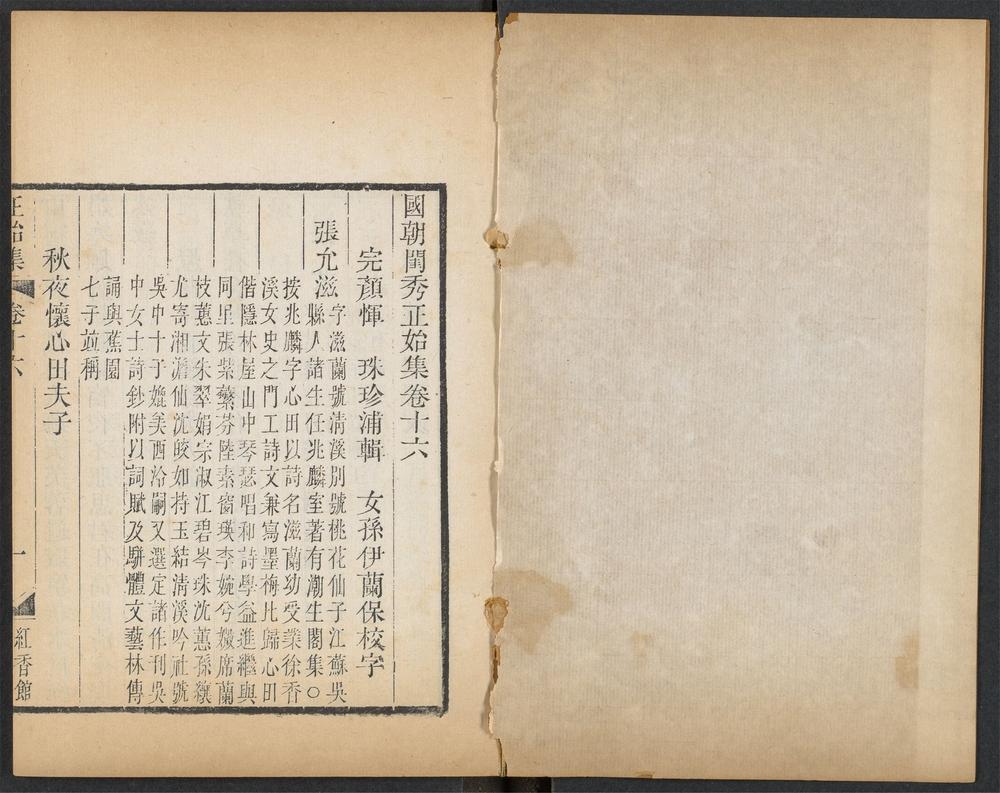 國朝閨秀正始集卷十六
完顏惲　珠珍浦輯　女孫伊蘭保校字
張允滋
字滋蘭號清溪別號桃花仙子江蘇吳
縣人諸生任兆麟室著有潮生閣集○
按兆麟字心田以詩名滋蘭幼受業徐香
溪女史之門工詩文兼寫墨梅比歸心田
偕隱林屋山中琴瑟唱和詩學益進繼與
同里張紫蘩芬陸素窗瑛李婉兮媺席蘭
枝蕙文朱翠娟宗淑江碧岑珠沈蕙孫纕
尤寄湘澹仙沈皎如持玉結清溪吟社號
吳中十子媲美西泠嗣又選定諸作刊吳
中女士詩鈔附以詞賦及駢體文藝林傳
誦與蕉園
七子竝稱
秋夜懷心田夫子
正始集
卷十六
一
紅香館